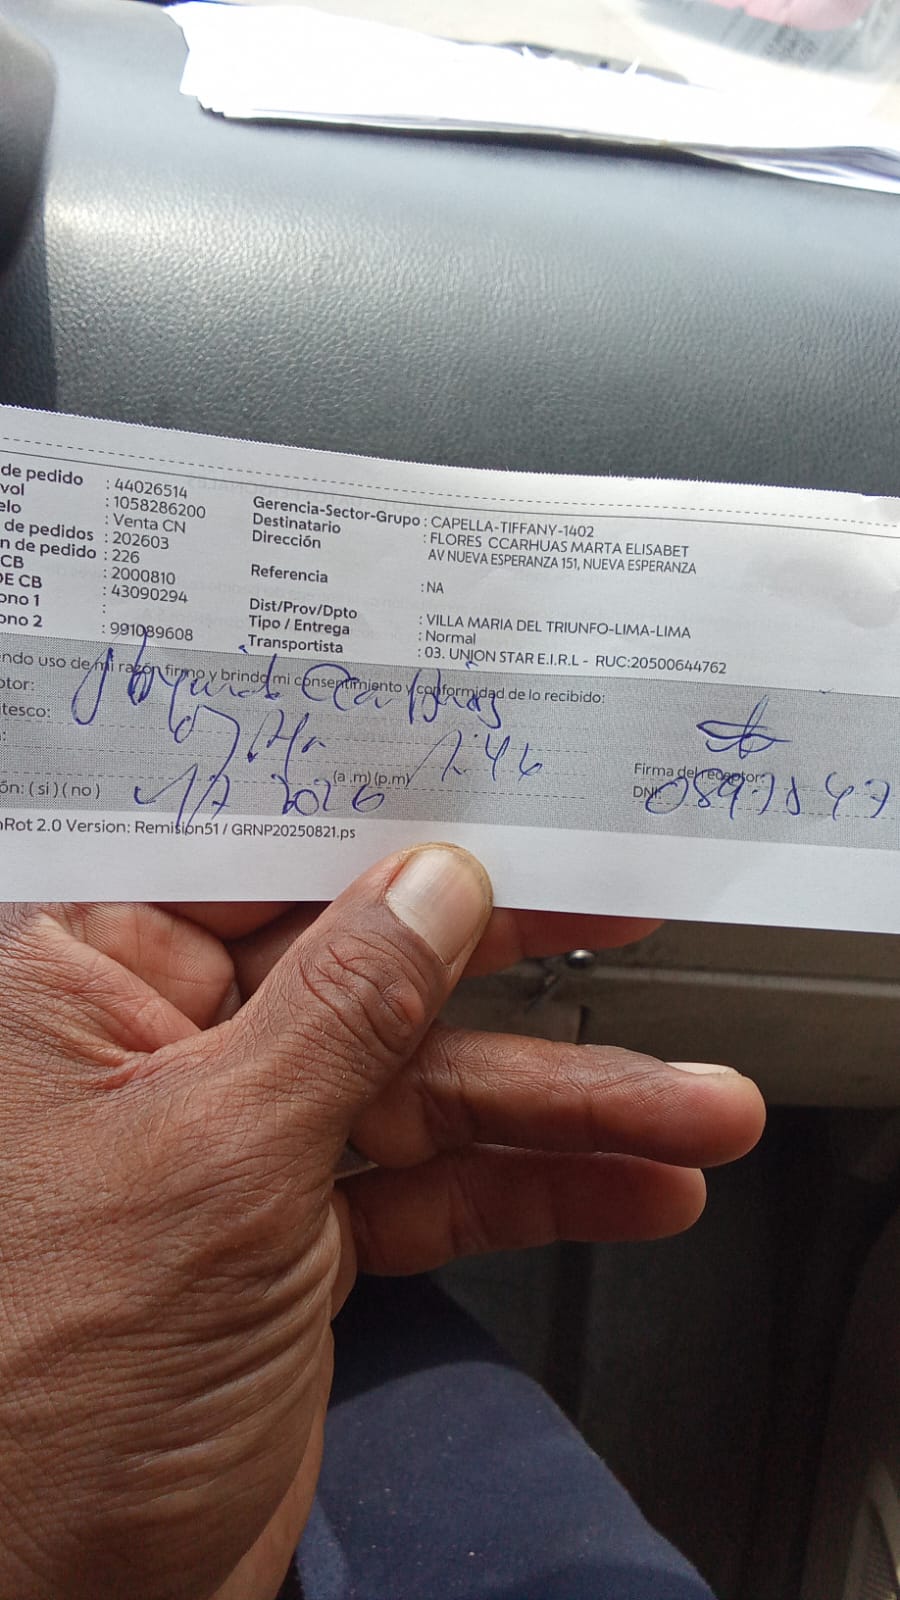 de pedido : 44026514
vol : 1058286200
elo : Venta CN
de pedidos : 202603
n de pedido : 226
CB : 2000810
DE CB : 43090294
ono 1 :
ono 2 : 991089608
Gerencia-Sector-Grupo : CAPELLA-TIFFANY-1402
Destinatario : FLORES CCARHUAS MARTA ELISABET
Dirección AV NUEVA ESPERANZA 151, NUEVA ESPERANZA
Referencia : NA
Dist/Prov/Dpto : VILLA MARIA DEL TRIUNFO-LIMA-LIMA
Tipo / Entrega : Normal
Transportista : 03. UNION STAR E.I.R.L - RUC:20500644762
endo uso de mi razón firmo y brindo mi consentimiento y conformidad de lo recibido:
ptor:
tesco:
(a .m) (p.m)
ón: ( si ) ( no ) 2026
Firma del receptor:
DNI:
nRot 2.0 Version: Remision51 / GRNP20250821.ps